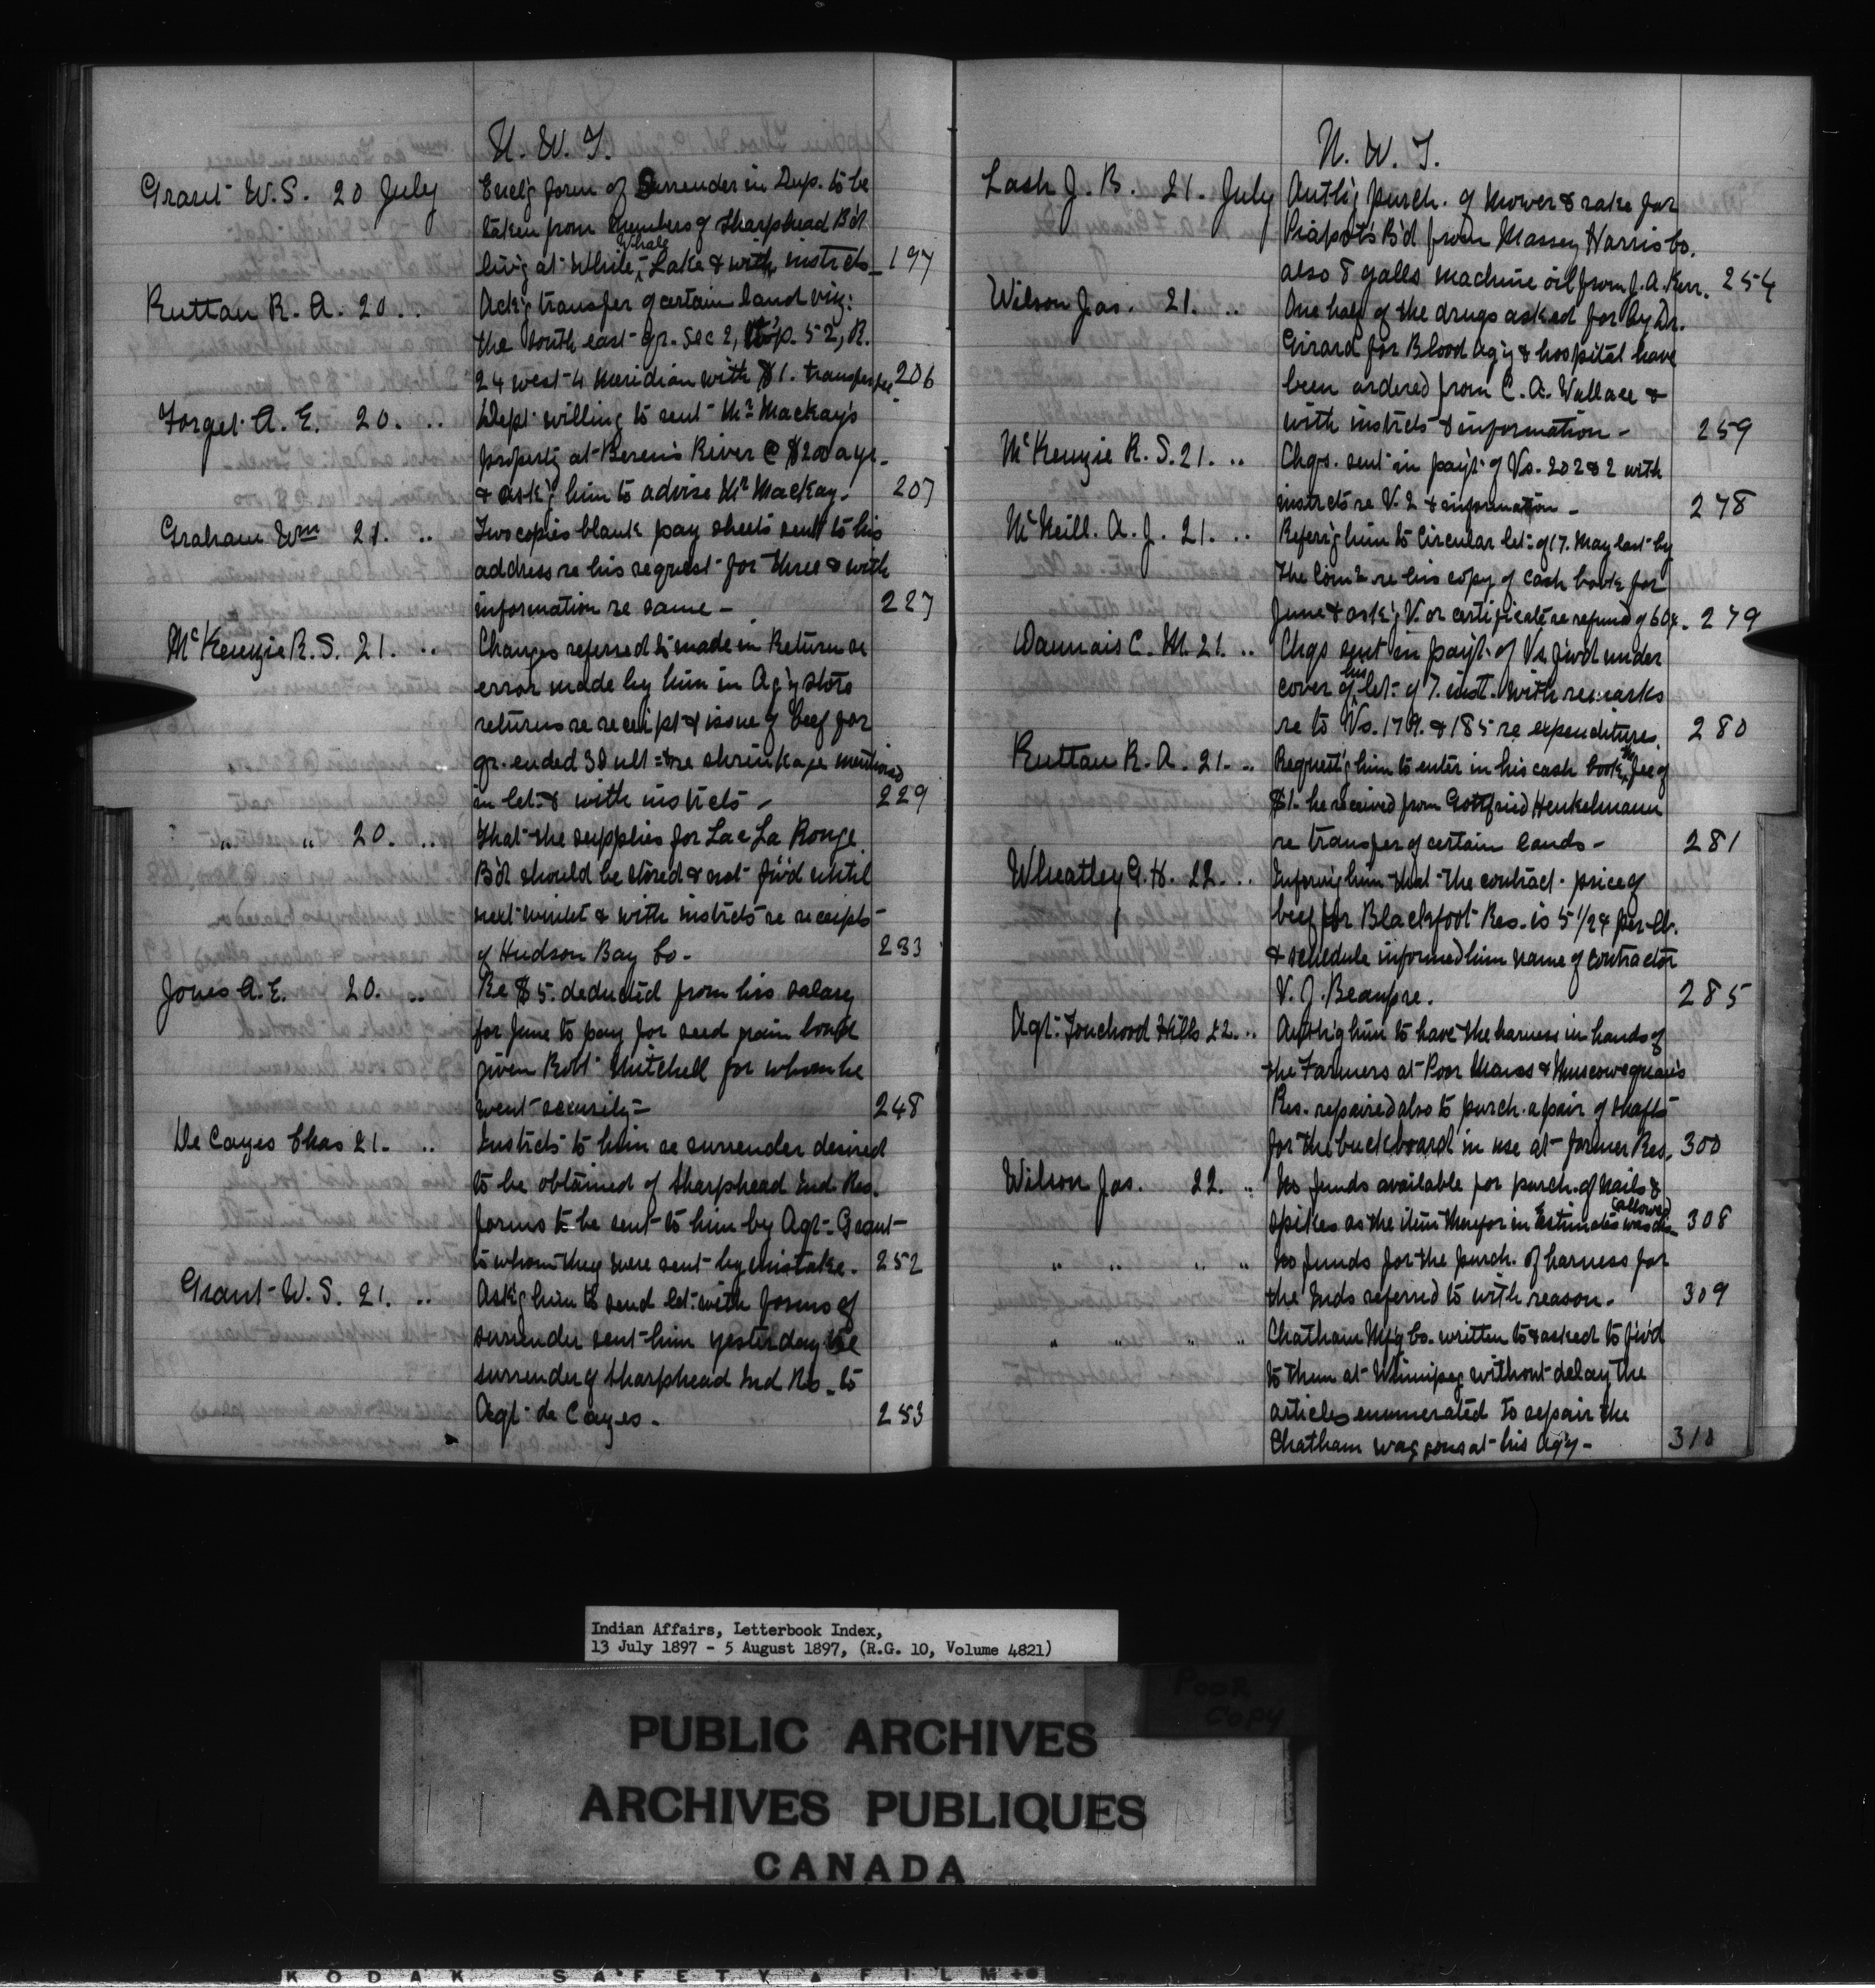 N. W. T.
Grant W.S. 20 July Encl'g form of Surrender in Dup. to be
taken from members of Sharphead B'd
Whale
liv'g at White, Lake & with instrcts 197
Ruttan R. A. 20. .. Ack'g transfer of certain land viz:
the South east qr. Sec 2, Tp. 52, R.
24 west 4 Meridian with $1. transfer fee 206
Forget A. E. 20. .. Dept willing to rent Mr. Mackay's
property at Beren's River @ $200 a yr.
& ask'g him to advise Mr Mackay. 207
Graham Wm 21. .. Two copies blank pay sheets sent to his
address re his request for three & with
information re same - 227
McKenzie R.S. 21. .. Changes referred to made in Return re
error made by him in Ag'y store
returns re receipt & issue of beef for
qr. ended 30 ult = & re shrinkage mentioned
in let: & with instrcts - 229
" " 20. .. That the supplies for Lac La Ronge
B'd should be stored & not f'w'd until
next winter & with instrcts re receipts
of Hudson Bay Co. 233
Jones A.E. 20. .. Re $5. deducted from his salary
for June to pay for seed grain bond
given Robt Mitchell for whom he
went security - 248
De Cayes Chas 21. .. Instrcts to him re surrender desired
to be obtained of Sharphead Ind. Res.
forms to be sent to him by Agt. Grant
to whom they were sent by mistake. 252
Grant W.S. 21. .. Ask'g him to send let: with forms of
surrender sent him yesterday re
surrender of Sharphead Ind Res. to
Agt. de Cayes. 253
N. W. T.
Lash J. B. 21. July Auth'g purch. of mower & rake for
Piapot's B'd from Massey Harris Co.
also 8 galls machine oil from J. A. Kerr. 254
Wilson Jas. 21. .. One half of the drugs asked for by Dr.
Girard for Blood Ag'y & hospital have
been ordered from C. A. Wallace &
with instrcts & information - 259
McKenzie R. S. 21. .. Chqs. sent in pay't of Vs. 202 & 2 with
instrcts re V. 2 & information - 278
McNeill. A. J. 21. .. Refer'g him to Circular let: of 17. May last by
the Comr. re his copy of cash book for
June & ask'g V. or certificate re refund of 60¢. 279
Daunais C. M. 21. .. Chqs sent in pay't of Vs. f'w'd under
his
cover of let: of 7. inst. with remarks
re to Vs. 179. & 185 re expenditures. 280
Ruttan R. A. 21. .. Request'g him to enter in his cash book the fee of
$1. he received from Gottfried Henkelmann
re transfer of certain lands - 281
Wheatley G. H. 22. .. Inform'g him that the contract price of
beef for Blackfoot Res. is 5 1/2¢ per lb.
& schedule informed him name of contractor
V. J. Beaupre. 285
Agt. Touchwood Hills 22. .. Auth'g him to have the harness in hands of
the Farmers at Poor Mans & Muscowequan's
Res. repaired also to purch. a pair of shafts
for the buckboard in use at former Res. 300
Wilson Jas. 22. .. No funds available for purch. of nails &
allowed
spikes as the item therefor in Estimates was dis- 308
" " " " No funds for the purch. of harness for
the Inds referred to with reason. 309
" " " " Chatham M'f'g Co. written to & asked to f'w'd
to them at Winnipeg without delay the
articles enumerated to repair the
Chatham waggons at his Ag'y - 310
Indian Affairs, Letterbook Index,
13 July 1897 - 5 August 1897, (R.G. 10, Volume 4821)
POOR
COPY
PUBLIC ARCHIVES
ARCHIVES PUBLIQUES
CANADA
KODAK SAFETY FILM